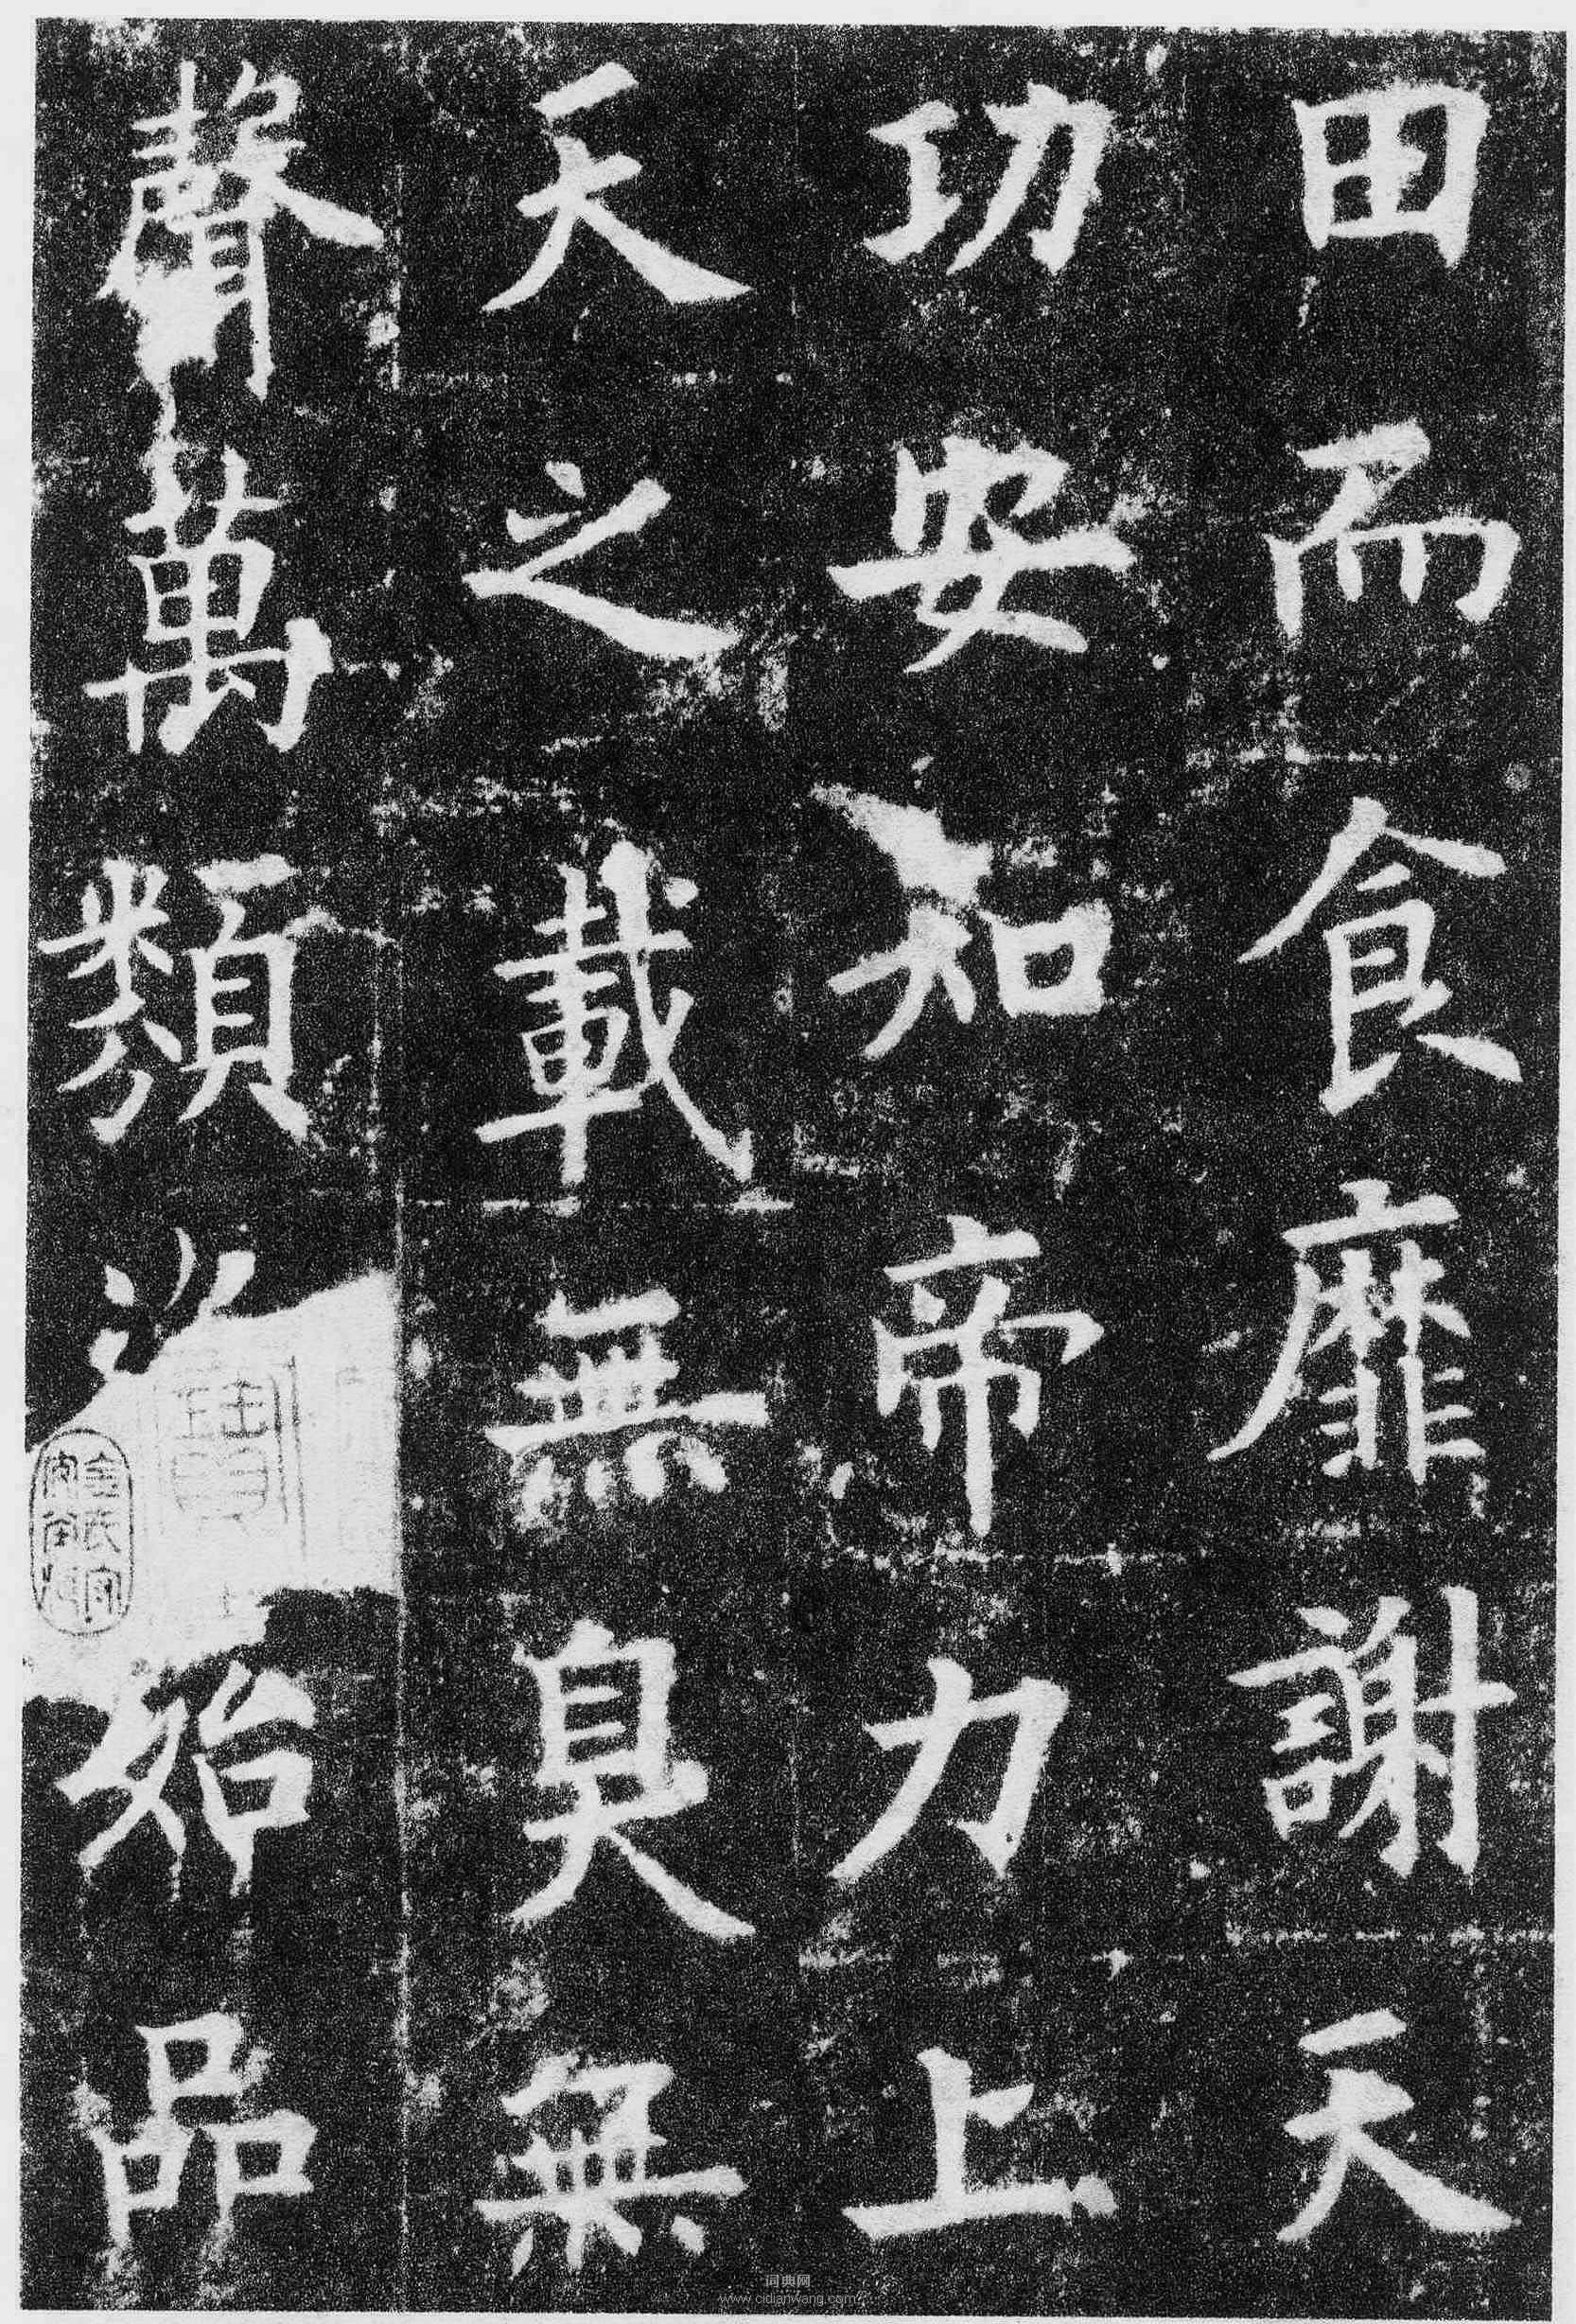 田而食靡謝天
功安知帝力上
天之載無臭無
聲萬類資始品
词典网
www.cidianwang.com